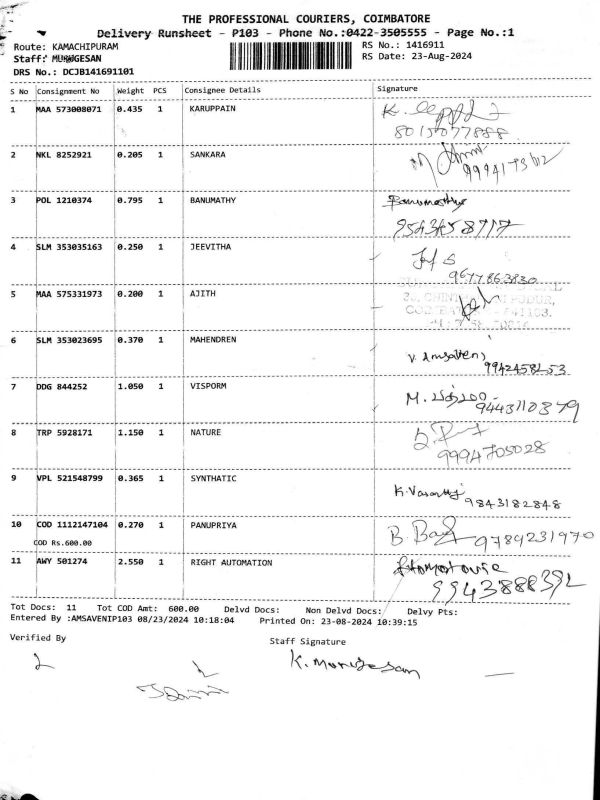 THE PROFESSIONAL COURIERS, COIMBATORE
Delivery Runsheet - P103 - Phone No.:0422-3505555 - Page No.:1
Route: KAMACHIPURAM RS No.: 1416911
Staff: MURUGESAN RS Date: 23-Aug-2024
DRS No.: DCJB141691101
S No Consignment No Weight PCS Consignee Details Signature
1 MAA 573008071 0.435 1 KARUPPAIN
8015077888
2 NKL 8252921 0.205 1 SANKARA
3 POL 1210374 0.795 1 BANUMATHY Banumathy
9543458717
4 SLM 353035163 0.250 1 JEEVITHA
9677863830
5 MAA 575331973 0.200 1 AJITH
6 SLM 353023695 0.370 1 MAHENDREN
9942458253
7 DDG 844252 1.050 1 VISPORM
9443110879
8 TRP 5928171 1.150 1 NATURE
9994705028
9 VPL 521548799 0.365 1 SYNTHATIC K. Vasanthy
9843182848
10 COD 1112147104 0.270 1 PANUPRIYA 9789231970
COD Rs.600.00
11 AWY 501274 2.550 1 RIGHT AUTOMATION
9943888392
Tot Docs: 11 Tot COD Amt: 600.00 Delvd Docs: Non Delvd Docs: Delvy Pts:
Entered By :AMSAVENIP103 08/23/2024 10:18:04 Printed On: 23-08-2024 10:39:15
Verified By Staff Signature
K. Murugesan